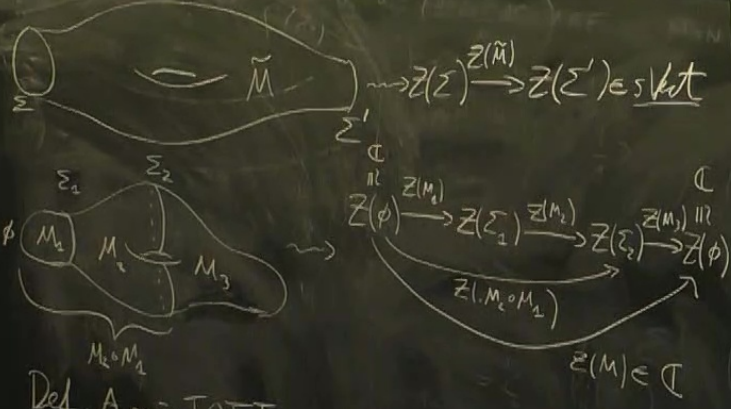 Σ M̃ Σ' ⇝ Z(Σ) —Z(M̃)→ Z(Σ') ∈ sVect
ϕ M₁ Σ₁ M₂ Σ₂ M₃
M₂∘M₁
⇝ ℂ ≅ Z(ϕ) —Z(M₁)→ Z(Σ₁) —Z(M₂)→ Z(Σ₂) —Z(M₃)→ Z(ϕ) ≅ ℂ
Z(M₂∘M₁)
Z(M) ∈ ℂ
Def A